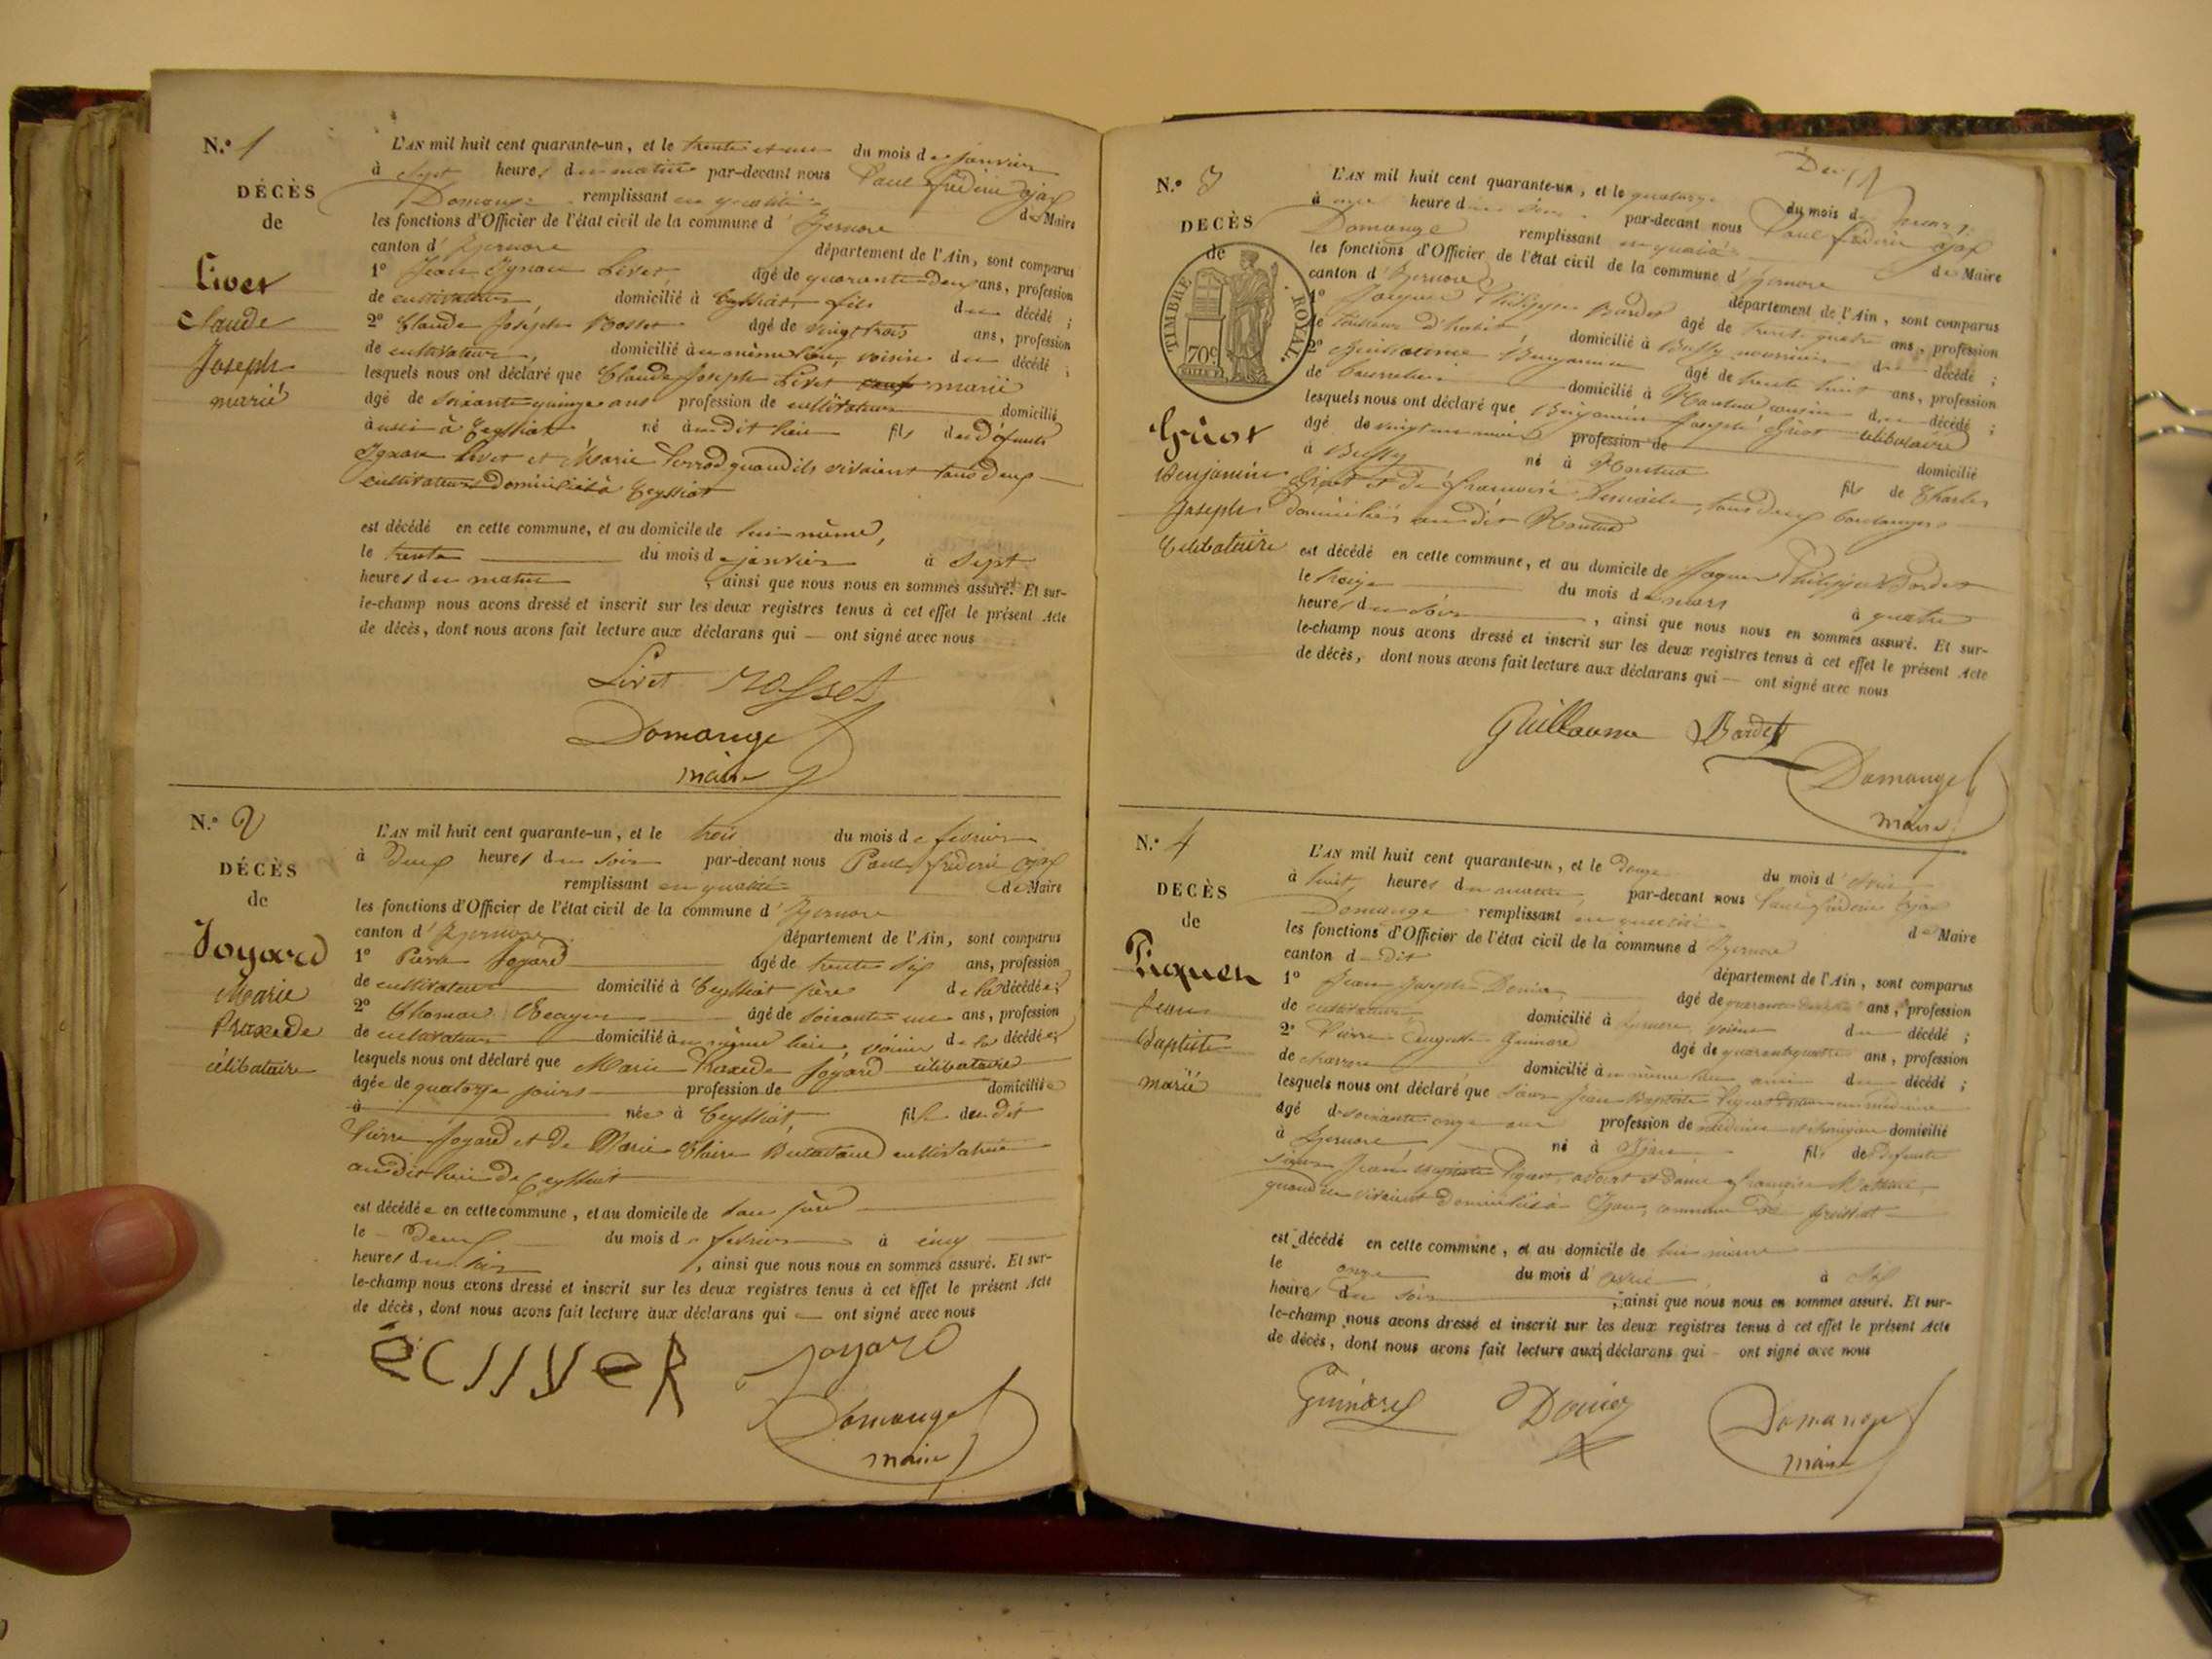 N.° 1
DÉCÈS
de
Livet
Claude
Joseph
marié
L'AN mil huit cent quarante-un, et le trente et un du mois de janvier
à sept heures du matin par-devant nous Paul frédéric ajax
Domange remplissant en qualité de Maire
les fonctions d'Officier de l'état civil de la commune d'Izernore
canton d'Izernore département de l'Ain, sont comparus
1° Jean Ignace Livet âgé de quarante deux ans, profession
de cultivateur, domicilié à Ceyssiat fils du décédé ;
2° Claude Joseph Rosset âgé de vingt trois ans, profession
de cultivateur, domicilié au même lieu, voisin du décédé ;
lesquels nous ont déclaré que Claude Joseph Livet marié
âgé de soixante quinze ans profession de cultivateur domicilié
aussi à Ceyssiat né audit lieu fils de défunts
Ignace Livet et Marie quand ils vivaient tous deux
cultivateurs domiciliés à Ceyssiat
est décédé en cette commune, et au domicile de lui même,
le trente du mois de janvier à sept
heures du matin, ainsi que nous nous en sommes assuré. Et sur-
le-champ nous avons dressé et inscrit sur les deux registres tenus à cet effet le présent Acte
de décès, dont nous avons fait lecture aux déclarans qui — ont signé avec nous
Livet Rosset
Domange
maire
N.° 2
DÉCÈS
de
Joyard
Marie
Praxede
célibataire
L'AN mil huit cent quarante-un, et le trois du mois de fevrier
à deux heures du soir par-devant nous Paul frédéric ajax
remplissant en qualité de Maire
les fonctions d'Officier de l'état civil de la commune d'Izernore
canton d'Izernore département de l'Ain, sont comparus
1° Pierre Joyard âgé de trente six ans, profession
de cultivateur domicilié à Ceyssiat père de la décédée ;
2° Thomas âgé de soixante un ans, profession
de cultivateur domicilié au même lieu, voisin de la décédée ;
lesquels nous ont déclaré que Marie Praxede Joyard célibataire
âgée de quatorze jours profession de domiciliée
à née à Ceyssiat, fille dudit
Pierre Joyard et de Marie Claire cultivatrice
audit lieu de Ceyssiat
est décédée en cette commune, et au domicile de son père
le deux du mois de fevrier à cinq
heures du soir, ainsi que nous nous en sommes assuré. Et sur-
le-champ nous avons dressé et inscrit sur les deux registres tenus à cet effet le présent Acte
de décès, dont nous avons fait lecture aux déclarans qui — ont signé avec nous
Joyard
Domange
maire
N.° 3
DÉCÈS
de
TIMBRE ROYAL.
70c
Griot
Benjamin
Joseph
Celibataire
L'AN mil huit cent quarante-un, et le quatorze du mois de mars
à une heure du soir par-devant nous Paul frédéric ajax
Domange remplissant en qualité de Maire
les fonctions d'Officier de l'état civil de la commune d'Izernore
canton d'Izernore département de l'Ain, sont comparus
1° Jacques Philippe Bardet âgé de trente quatre ans, profession
de tailleur d'habit domicilié à Bussy nourricier du décédé ;
2° Guillaume Benjamin âgé de trente huit ans, profession
de bourrelier domicilié à Nantua cousin du décédé ;
lesquels nous ont déclaré que Benjamin Joseph Griot célibataire
âgé de vingt un mois profession de domicilié
à Bussy né à Nantua fils de Charles
Griot et de françoise tous deux boulangers
domiciliés audit Nantua
est décédé en cette commune, et au domicile de Jacques Philippe Bardet
le treize du mois de mars à quatre
heures du soir, ainsi que nous nous en sommes assuré. Et sur-
le-champ nous avons dressé et inscrit sur les deux registres tenus à cet effet le présent Acte
de décès, dont nous avons fait lecture aux déclarans qui — ont signé avec nous
Guillaume Bardet
Domange
maire
N.° 4
DÉCÈS
de
Piquet
Jean
Baptiste
marié
L'AN mil huit cent quarante-un, et le douze du mois d'avril
à huit heures du matin, par-devant nous Paul frédéric ajax
Domange remplissant en qualité de Maire
les fonctions d'Officier de l'état civil de la commune d'Izernore
canton dudit département de l'Ain, sont comparus
1° Jean Joseph âgé de quarante ans, profession
de cultivateur domicilié à Izernore voisin du décédé ;
2° Pierre Guinard âgé de quarante quatre ans, profession
de charron domicilié au même lieu ami du décédé ;
lesquels nous ont déclaré que sieur Jean Baptiste Piquet
âgé de soixante onze ans profession de médecin et chirurgien domicilié
à Izernore né à fils de défunts
sieur Jean Piquet, avocat et dame françoise
quand ils vivaient domiciliés à commune de
est décédé en cette commune, et au domicile de lui même
le onze du mois d'avril à six
heures du soir, ainsi que nous nous en sommes assuré. Et sur-
le-champ nous avons dressé et inscrit sur les deux registres tenus à cet effet le présent Acte
de décès, dont nous avons fait lecture aux déclarans qui — ont signé avec nous
Guinard
Domange
maire